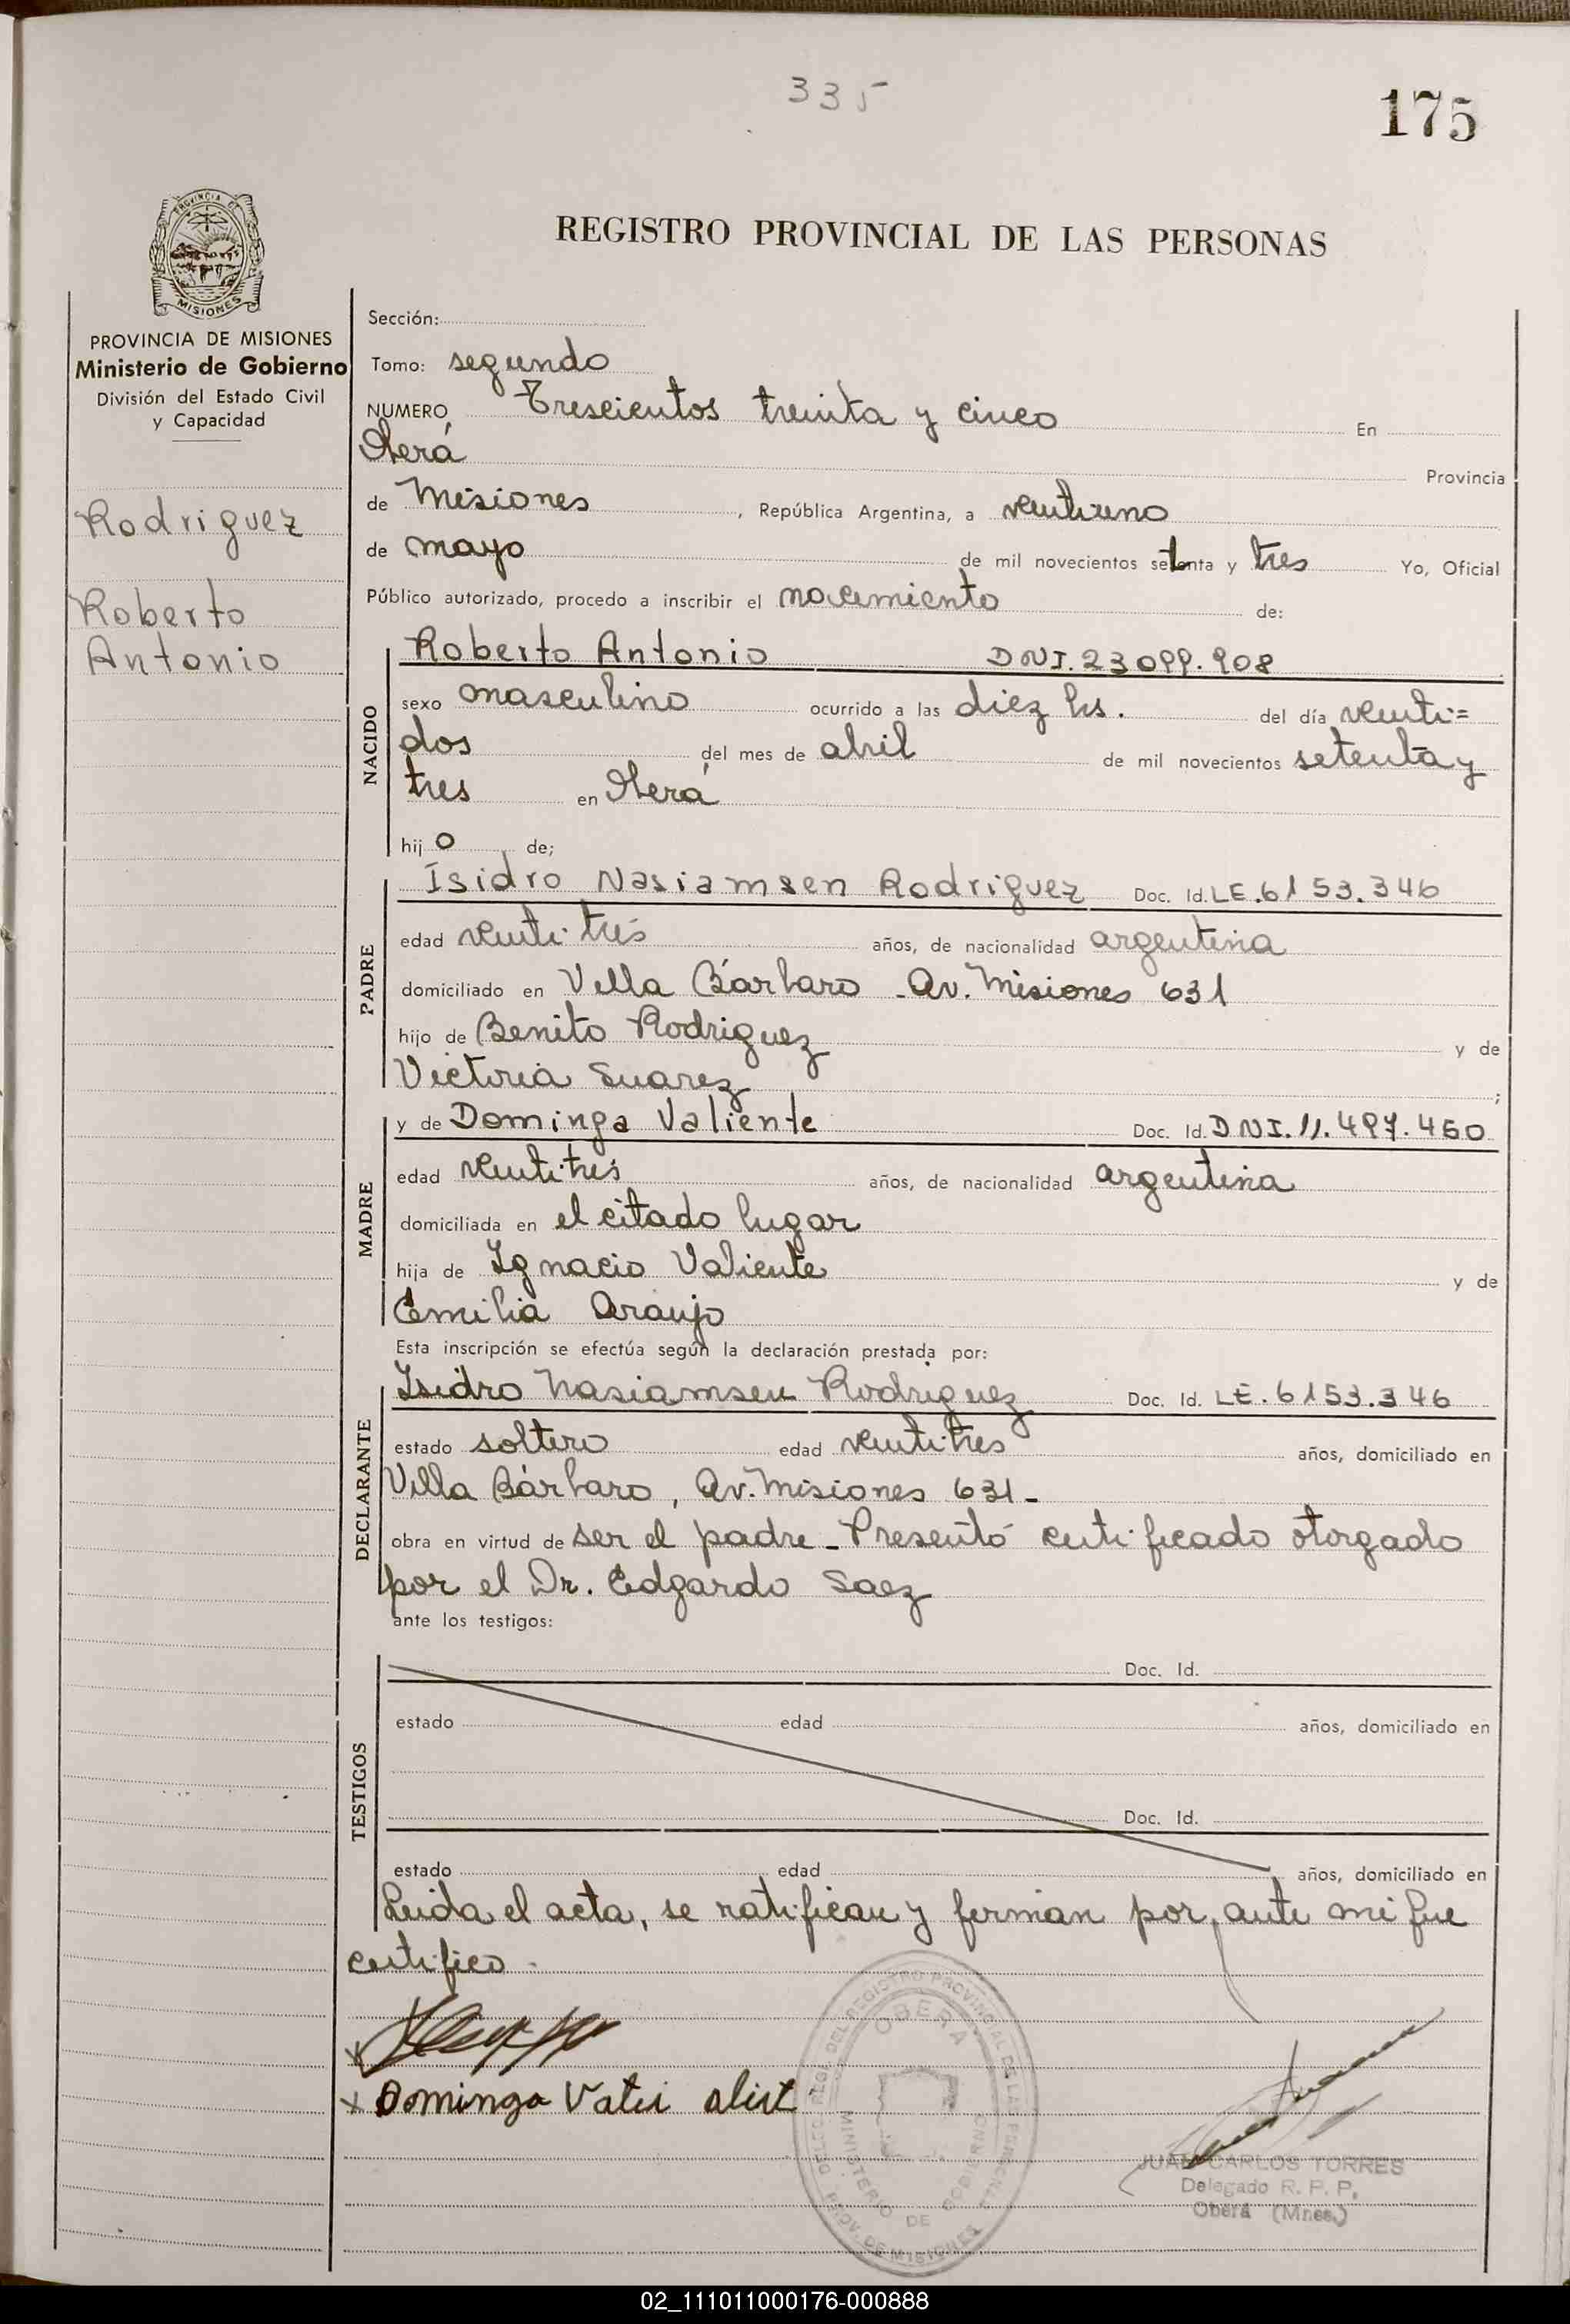 335
175
REGISTRO PROVINCIAL DE LAS PERSONAS
PROVINCIA DE
MISIONES
PROVINCIA DE MISIONES
Ministerio de Gobierno
División del Estado Civil
y Capacidad
Rodriguez
Roberto
Antonio
Sección:
Tomo: segundo
NUMERO Trescientos treinta y cinco En
Oberá Provincia
de Misiones, República Argentina, a veintiuno
de mayo de mil novecientos setenta y tres Yo, Oficial
Público autorizado, procedo a inscribir el nacimiento de:
NACIDO
Roberto Antonio DNI. 23099.908
sexo masculino ocurrido a las diez hs. del día veinti=
dos del mes de abril de mil novecientos setenta y
tres en Oberá
hijo de;
PADRE
Isidro Nasiamsen Rodriguez Doc. Id. LE.6153.346
edad veintitrés años, de nacionalidad argentina
domiciliado en Villa Bárbaro - Av. Misiones 631
hijo de Benito Rodriguez y de
Victoria Suarez ;
MADRE
y de Dominga Valiente Doc. Id. DNI. 11.497.460
edad veintitrés años, de nacionalidad argentina
domiciliada en el citado lugar
hija de Ignacio Valiente y de
Emilia Araujo
Esta inscripción se efectúa según la declaración prestada por:
DECLARANTE
Isidro Nasiamsen Rodriguez Doc. Id. LE. 6153.346
estado soltero edad veintitres años, domiciliado en
Villa Bárbaro, Av. Misiones 631-
obra en virtud de ser el padre - Presentó certificado otorgado
por el Dr. Edgardo Saez
ante los testigos:
TESTIGOS
Doc. Id.
estado edad años, domiciliado en
Doc. Id.
estado edad años, domiciliado en
Leida el acta, se ratifican y firman por ante mi que
certifico.
x
x Dominga
DEL REGISTRO PROVINCIAL DE LAS PERSONAS
OBERA
MINISTERIO DE GOBIERNO
PROV. DE MISIONES
JUAN CARLOS TORRES
Delegado R. P. P.
Oberá (Mnes.)
02_111011000176-000888